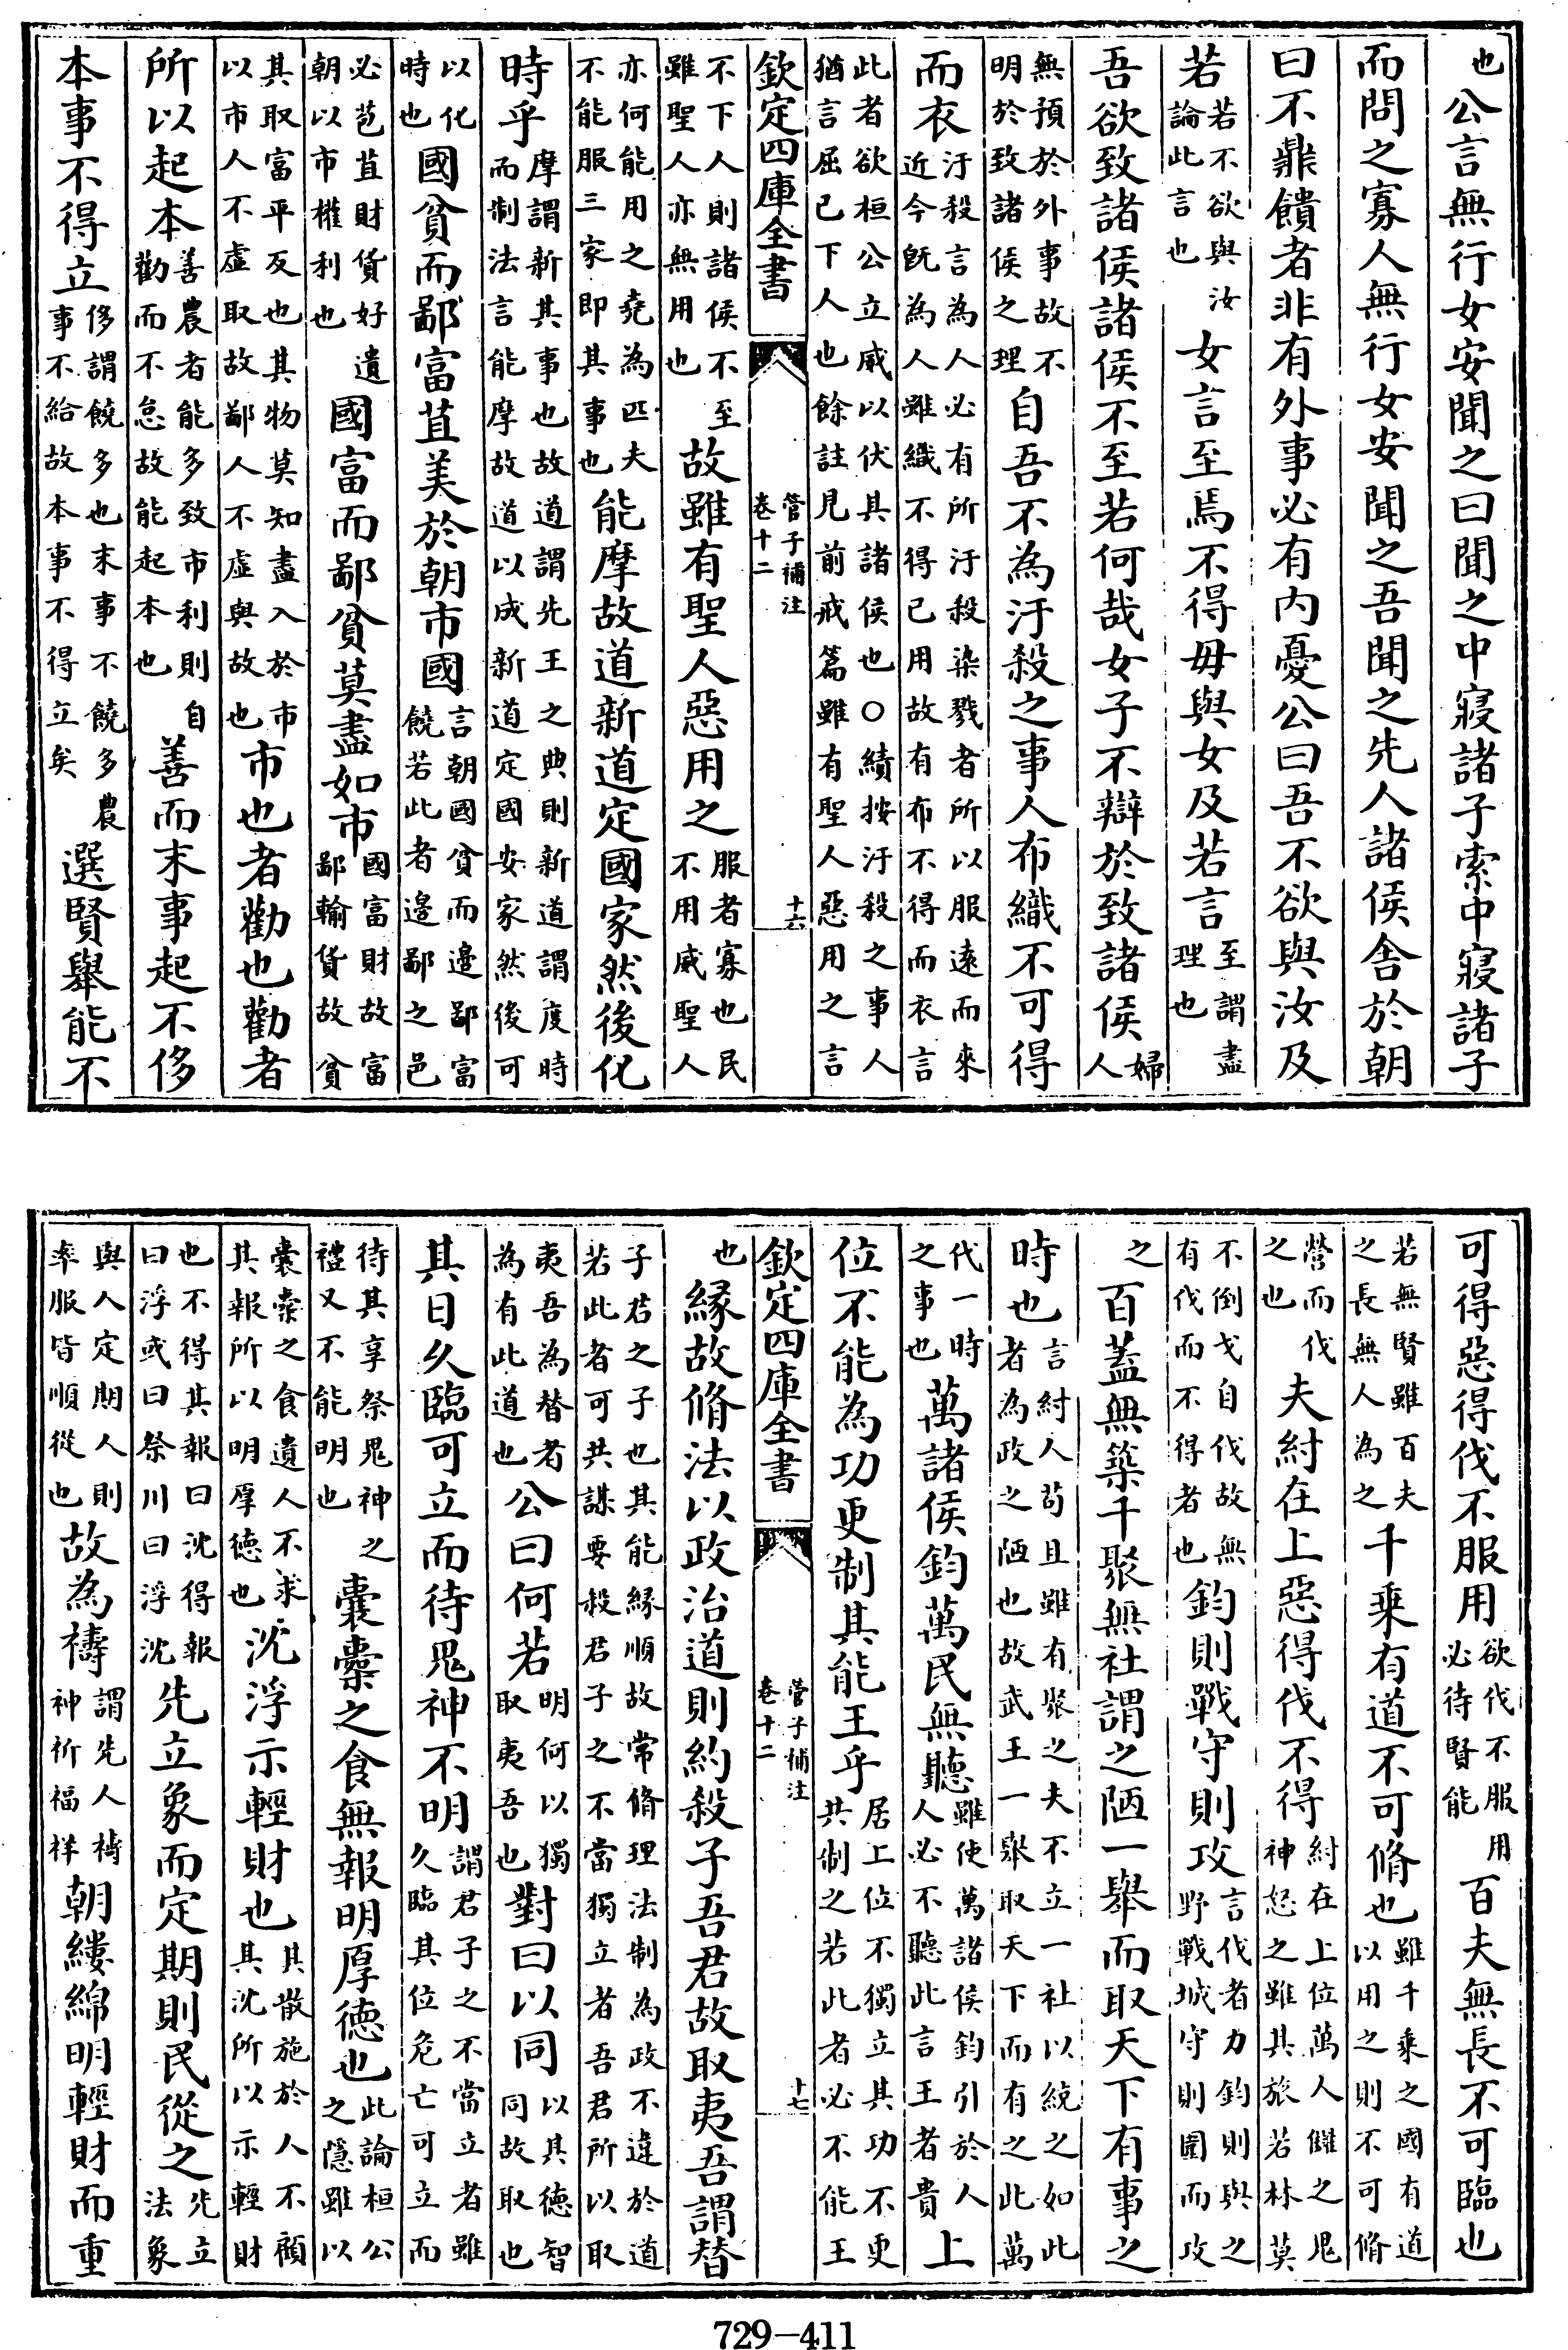 也公言無行女安聞之曰聞之中寢諸子索中寢諸子
而問之寡人無行女安聞之吾聞之先人諸侯舍於朝
曰不鼎饋者非有外事必有內憂公曰吾不欲與汝及
若若不欲與汝論此言也女言至焉不得毋與女及若言至謂盡理也
吾欲致諸侯諸侯不至若何哉女子不辯於致諸侯婦人
無預於外事故不明於致諸侯之理自吾不為汙殺之事人布織不可得
而衣汙殺言為人必有所汙殺染戮者所以服遠而來近今旣為人雖織不得已用故有布不得而衣言
此者欲桓公立威以伏其諸侯也○績按汙殺之事人猶言屈已下人也餘註見前戒篇雖有聖人惡用之言
欽定四庫全書 管子補注 卷十二 十六
不下人則諸侯不至雖聖人亦無用也故雖有聖人惡用之服者寡也民不用威聖人
亦何能用之堯為匹夫不能服三家即其事也能摩故道新道定國家然後化
時乎摩謂新其事也故道謂先王之典則新道謂度時而制法言能摩故道以成新道定國安家然後可
以化時也國貧而鄙富苴美於朝市國言朝國貧而邊鄙富饒若此者邊鄙之邑
必苞苴財貨好遺朝以市權利也國富而鄙貧莫盡如市國富財故富鄙輸貨故貧
其取富平反也其物莫知盡入於市以市人不虛取故鄙人不虛與故也市也者勸也勸者
所以起本善農者能多致市利則自勸而不怠故能起本也善而末事起不侈
本事不得立侈謂饒多也末事不饒多農事不給故本事不得立矣選賢舉能不
可得惡得伐不服用欲伐不服用必待賢能百夫無長不可臨也
若無賢雖百夫之長無人為之千乗有道不可脩也雖千乗之國有道以用之則不可脩
營而伐之也夫紂在上惡得伐不得紂在上位萬人讎之鬼神怒之雖其旅若林莫
不倒戈自伐故無有伐而不得者也鈞則戰守則攻言伐者力鈞則與之野戰城守則圍而攻
之百蓋無築千聚無社謂之陋一舉而取天下有事之
時也言紂人苟且雖有聚之夫不立一社以統之如此者為政之陋也故武王一舉取天下而有之此萬
代一時之事也萬諸侯鈞萬民無聽雖使萬諸侯鈞引於人人必不聽此言王者貴上
位不能為功更制其能王乎居上位不獨立其功不更共制之若此者必不能王
欽定四庫全書 管子補注 卷十二 十七
也緣故脩法以政治道則約殺子吾君故取夷吾謂替
子君之子也其能緣順故常脩理法制為政不違於道若此者可共謀要殺君子之不當獨立者吾君所以取
夷吾為替者為有此道也公曰何若明何以獨取夷吾也對曰以同以其德智同故取也
其日久臨可立而待鬼神不明謂君子之不當立者雖久臨其位危亡可立而
待其享祭鬼神之禮又不能明也囊橐之食無報明厚德也此論桓公之隱雖以
囊橐之食遺人不求其報所以明厚德也沈浮示輕財也其散施於人不顧其沈所以示輕財
也不得其報曰沈得報曰浮或曰祭川曰浮沈先立象而定期則民從之先立法象
與人定期人則率服皆順從也故為禱謂先人禱神祈福祥朝縷綿明輕財而重
729-411